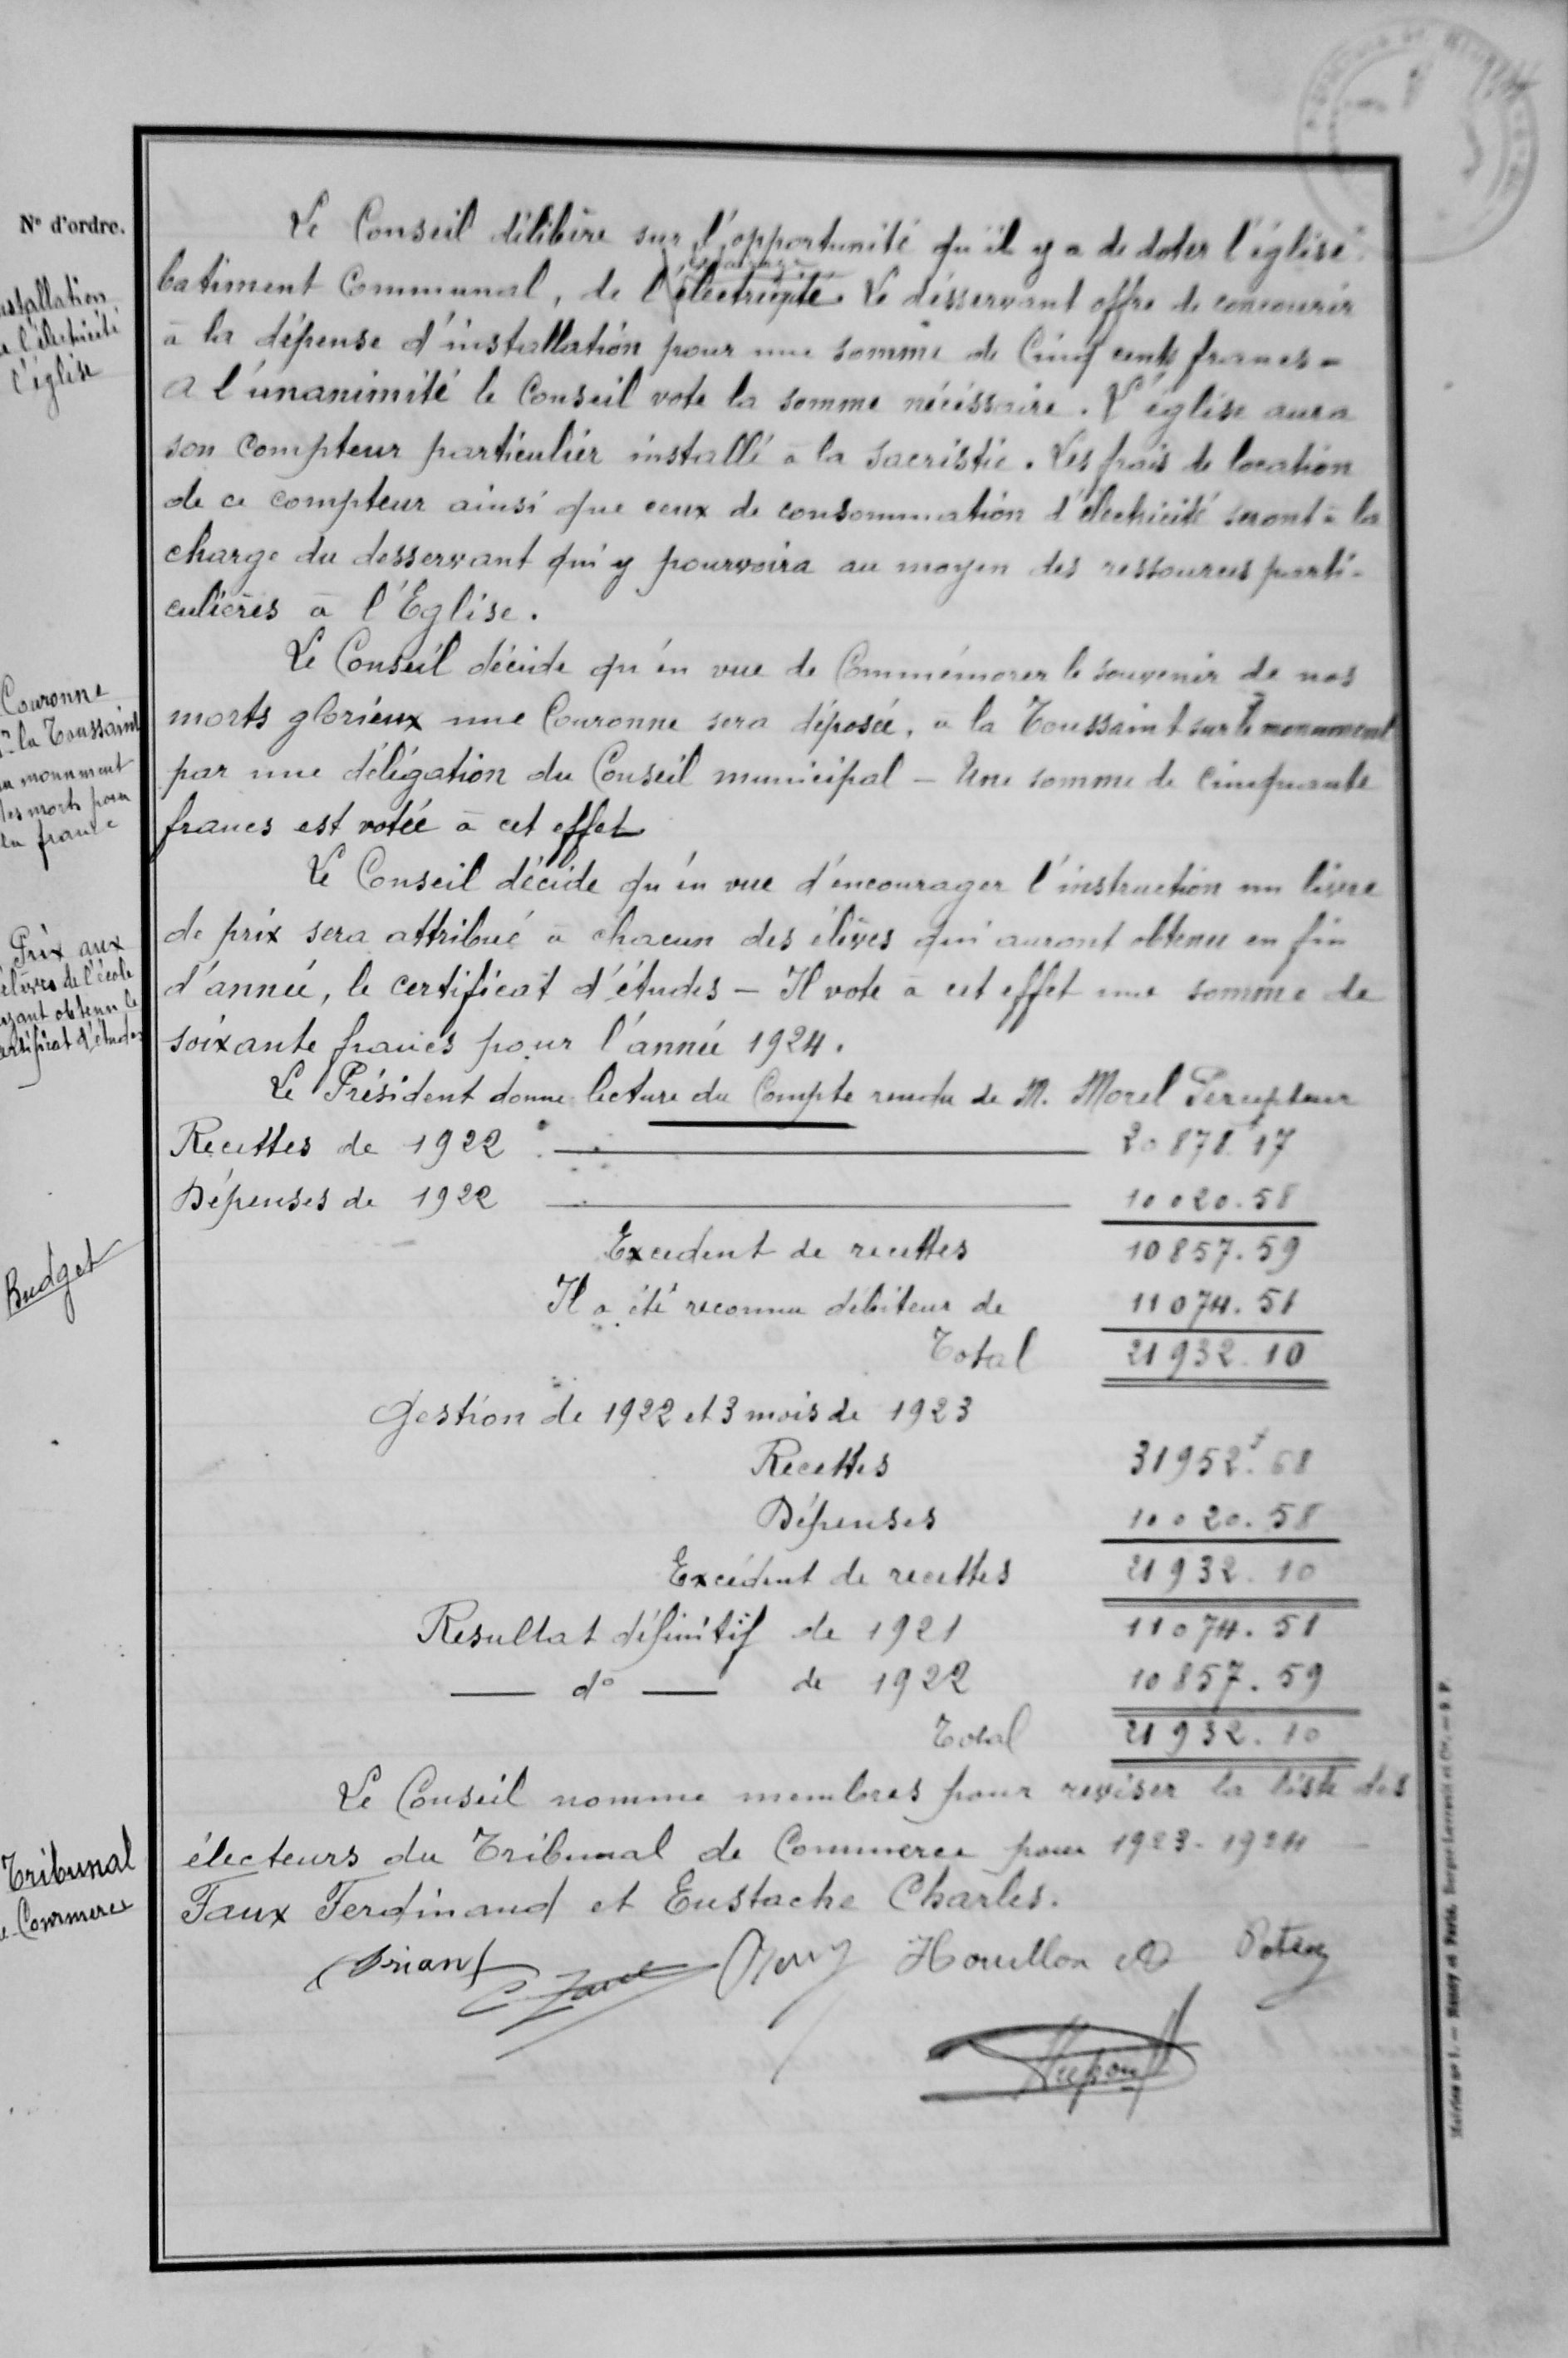 N° d'ordre.
Le Conseil délibère sur l'opportunité qu'il y a de doter l'église
batiment Communal, de l'électricité. Le désservant offre de concourir
à la dépense d'installation pour une somme de Cinq cents francs -
A l'unanimité le Conseil vote la somme nécéssaire. L'église aura
son Compteur particulier installé à la sacristie. Les frais de location
de ce compteur ainsi que ceux de consommation d'électricité seront à la
charge du desservant qui y pourvoira au moyen des ressources parti-
culières à l'Eglise.
nstallation
e l'électricité
l'église
Le Conseil décide qu'en vue de Commémorer le souvenir de nos
morts glorieux une Couronne sera déposée, à la Toussaint sur le monument
par une délégation du Conseil municipal - Une somme de cinquante
francs est votée à cet effet
Couronne
la Toussaint
au monument
des morts pour
la france
Le Conseil décide qu'en vue d'encourager l'instruction un livre
de prix sera attribué à chacun des élèves qui auront obtenu en fin
d'année, le certificat d'études - Il vote à cet effet une somme de
soixante francs pour l'année 1924.
Prix aux
élèves de l'école
ayant obtenu le
certificat d'études
Le Président donne lecture du Compte rendu de M. Morel Percepteur
Recettes de 1922 20878f17
Dépenses de 1922 10020.58
Excedent de recettes 10857.59
Il a été reconnu débiteur de 11074.51
Total 21932.10
Budget
Gestion de 1922 et 3 mois de 1923
Recettes 31952f.68
Dépenses 10020.58
Excédent de recettes 21932.10
Resultat définitif de 1921 11074.51
— d° — de 1922 10857.59
Total 21932.10
Le Conseil nomme membres pour reviser la liste des
électeurs du Tribunal de Commerce pour 1923-1924 -
Faux Ferdinand et Eustache Charles.
Tribunal
e Commerce
Briant Houillon
Dupont